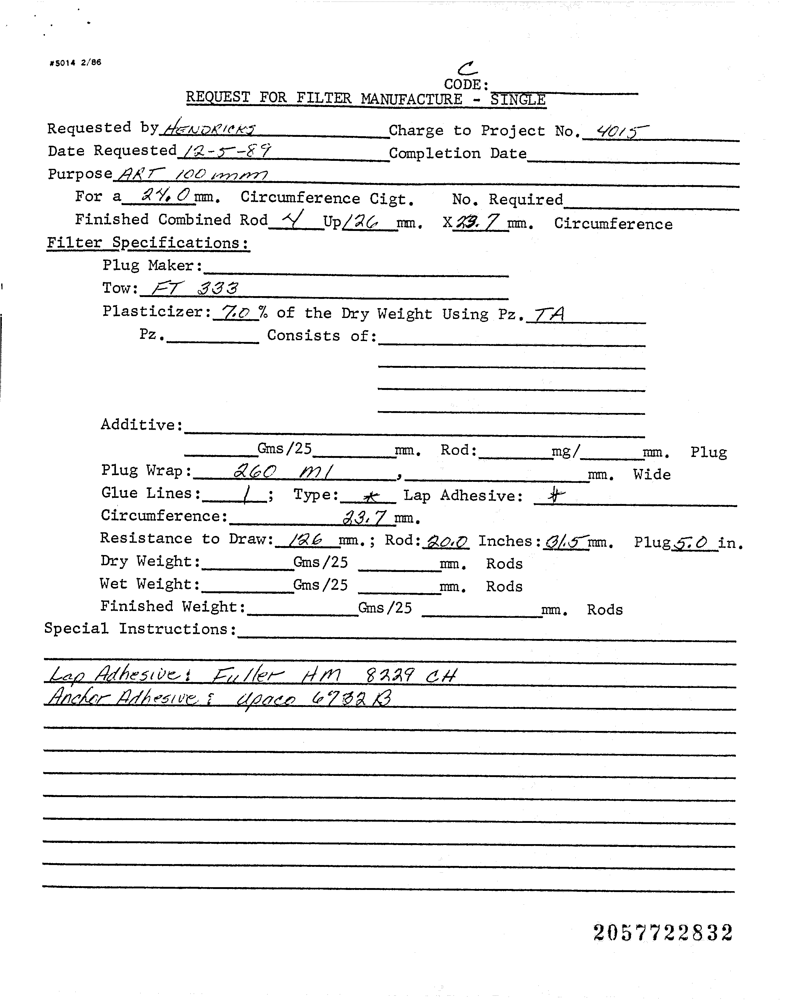 #5014 2/86
C
CODE:
REQUEST FOR FILTER MANUFACTURE - SINGLE
Requested by HENDRICKS Charge to Project No. 4015
Date Requested 12-5-89 Completion Date
Purpose ART 100 mm
For a 24.0 mm. Circumference Cigt. No. Required
Finished Combined Rod 4 Up/126 mm. X 23.7 mm. Circumference
Filter Specifications:
Plug Maker:
Tow: FT 333
Plasticizer: 7.0 % of the Dry Weight Using Pz. TA
Pz. Consists of:
Additive:
Gms/25 mm. Rod: mg/ mm. Plug
Plug Wrap: 260 M1 , mm. Wide
Glue Lines: 1 ; Type: * Lap Adhesive: *
Circumference: 23.7 mm.
Resistance to Draw: 126 mm.; Rod: 20.0 Inches: 31.5 mm. Plug 5.0 in.
Dry Weight: Gms/25 mm. Rods
Wet Weight: Gms/25 mm. Rods
Finished Weight: Gms/25 mm. Rods
Special Instructions:
Lap Adhesive: Fuller HM 8229 CH
Anchor Adhesive: Upaco 6732 B
2057722832